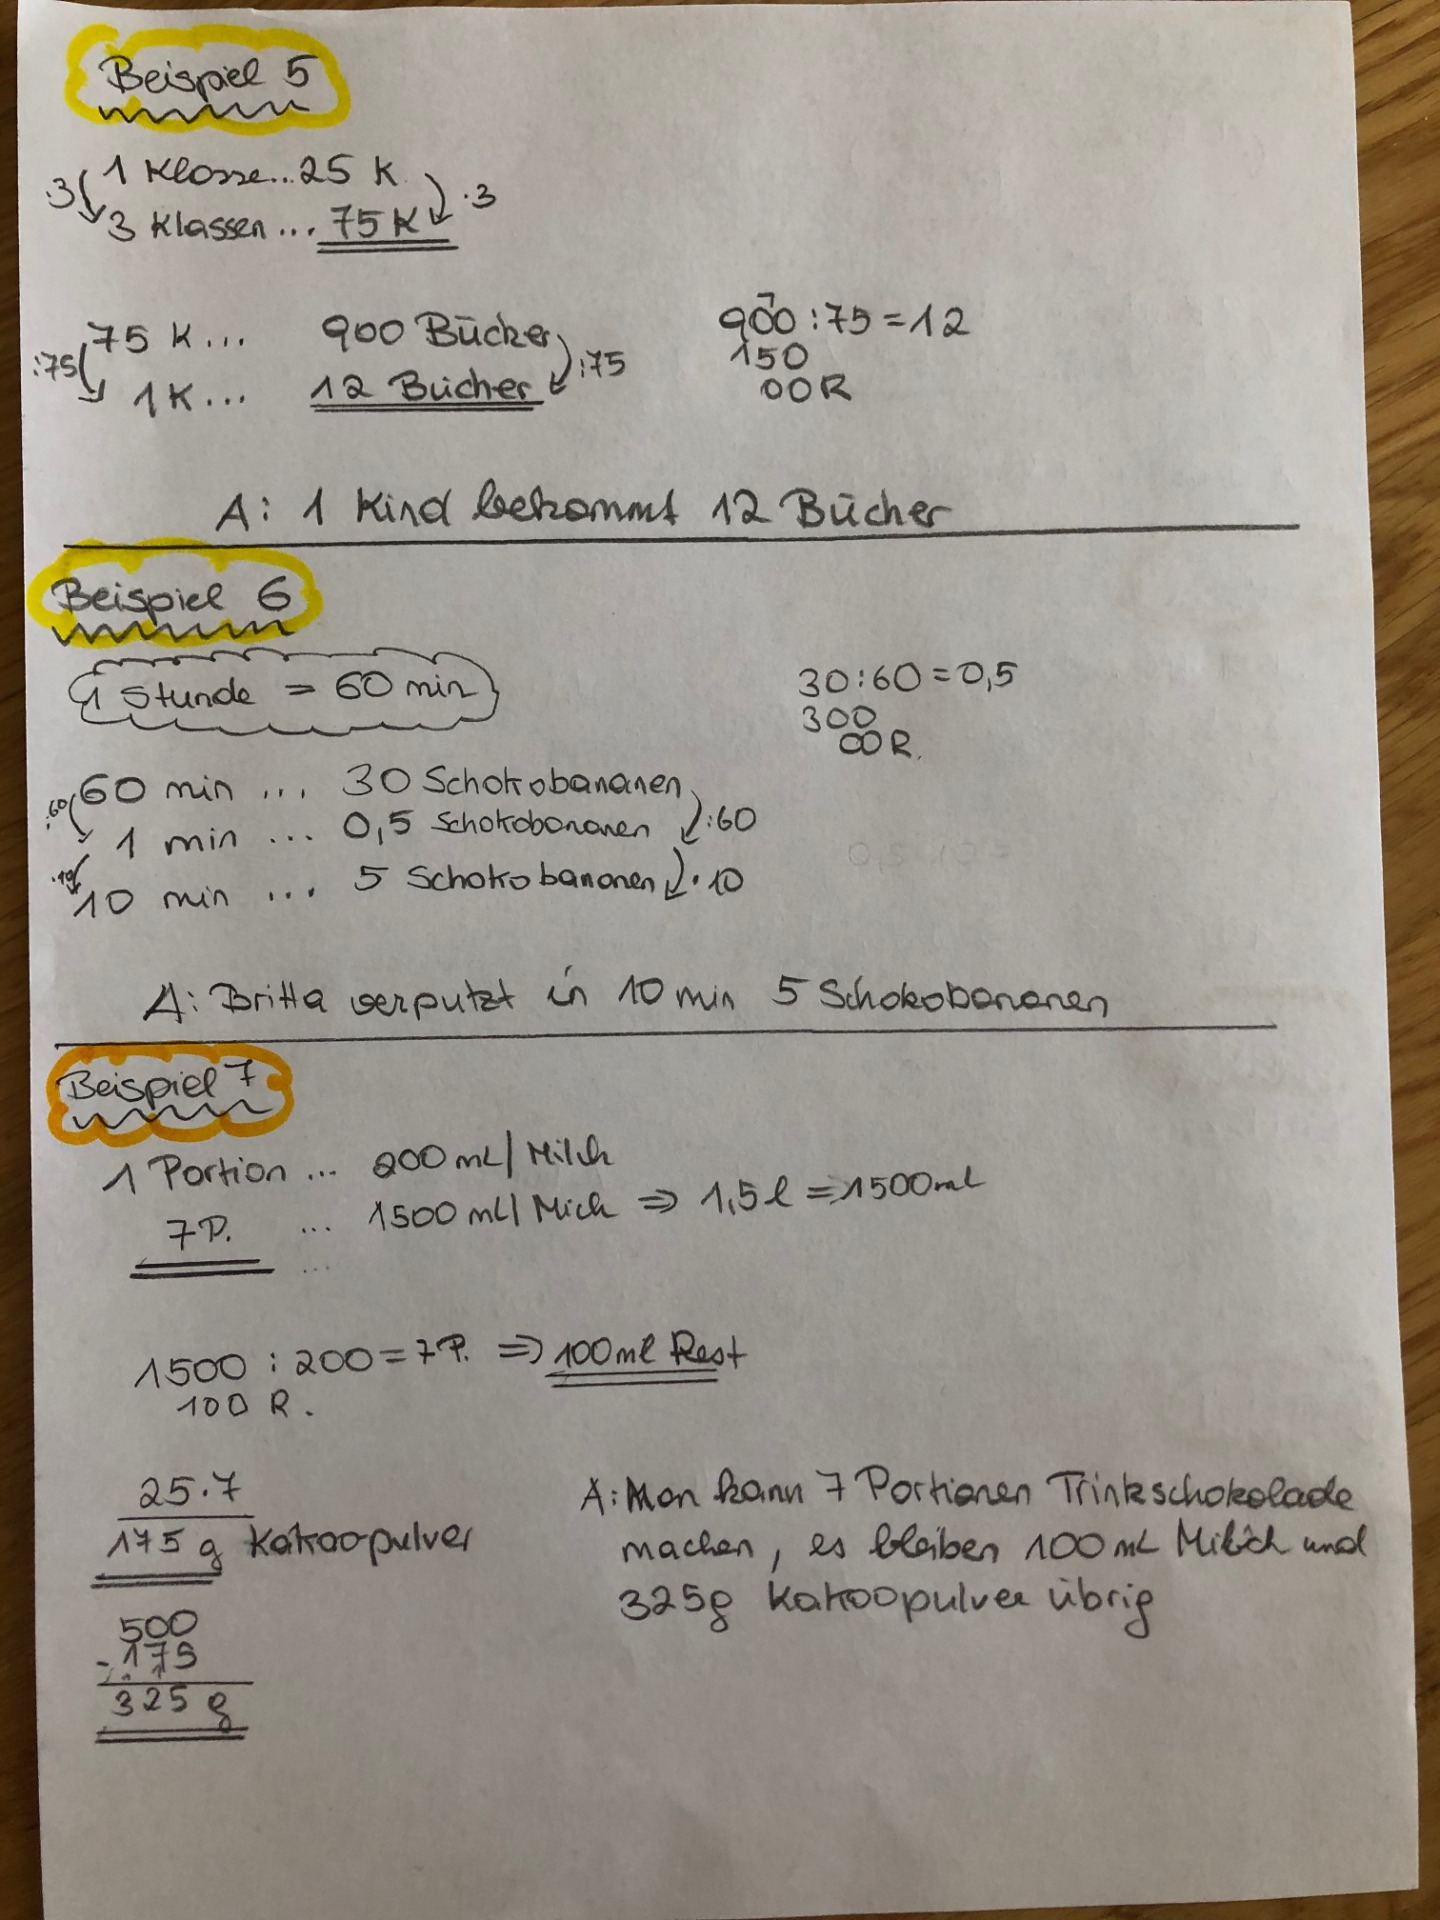 Beispiel 5
·3 1 Klasse...25 K ·3
3 Klassen ... 75 K
75 K ... 900 Bücher
:75 :75
1 K ... 12 Bücher
900 : 75 = 12
150
00R
A: 1 Kind bekommt 12 Bücher
Beispiel 6
1 Stunde = 60 min
30:60=0,5
300
00R.
:60 60 min ... 30 Schokobananen
1 min ... 0,5 Schokobananen :60
·10
10 min ... 5 Schokobananen ·10
A: Britta verputzt in 10 min 5 Schokobananen
Beispiel 7
1 Portion ... 200 ml Milch
7 P. ... 1500 ml Mich ⇒ 1,5 l = 1500 ml
1500 : 200 = 7 P. ⇒ 100 ml Rest
100 R.
25·7
175 g Kakaopulver
500
-175
325 g
A: Man kann 7 Portionen Trinkschokolade
machen, es bleiben 100 mL Milch und
325g Kakaopulver übrig